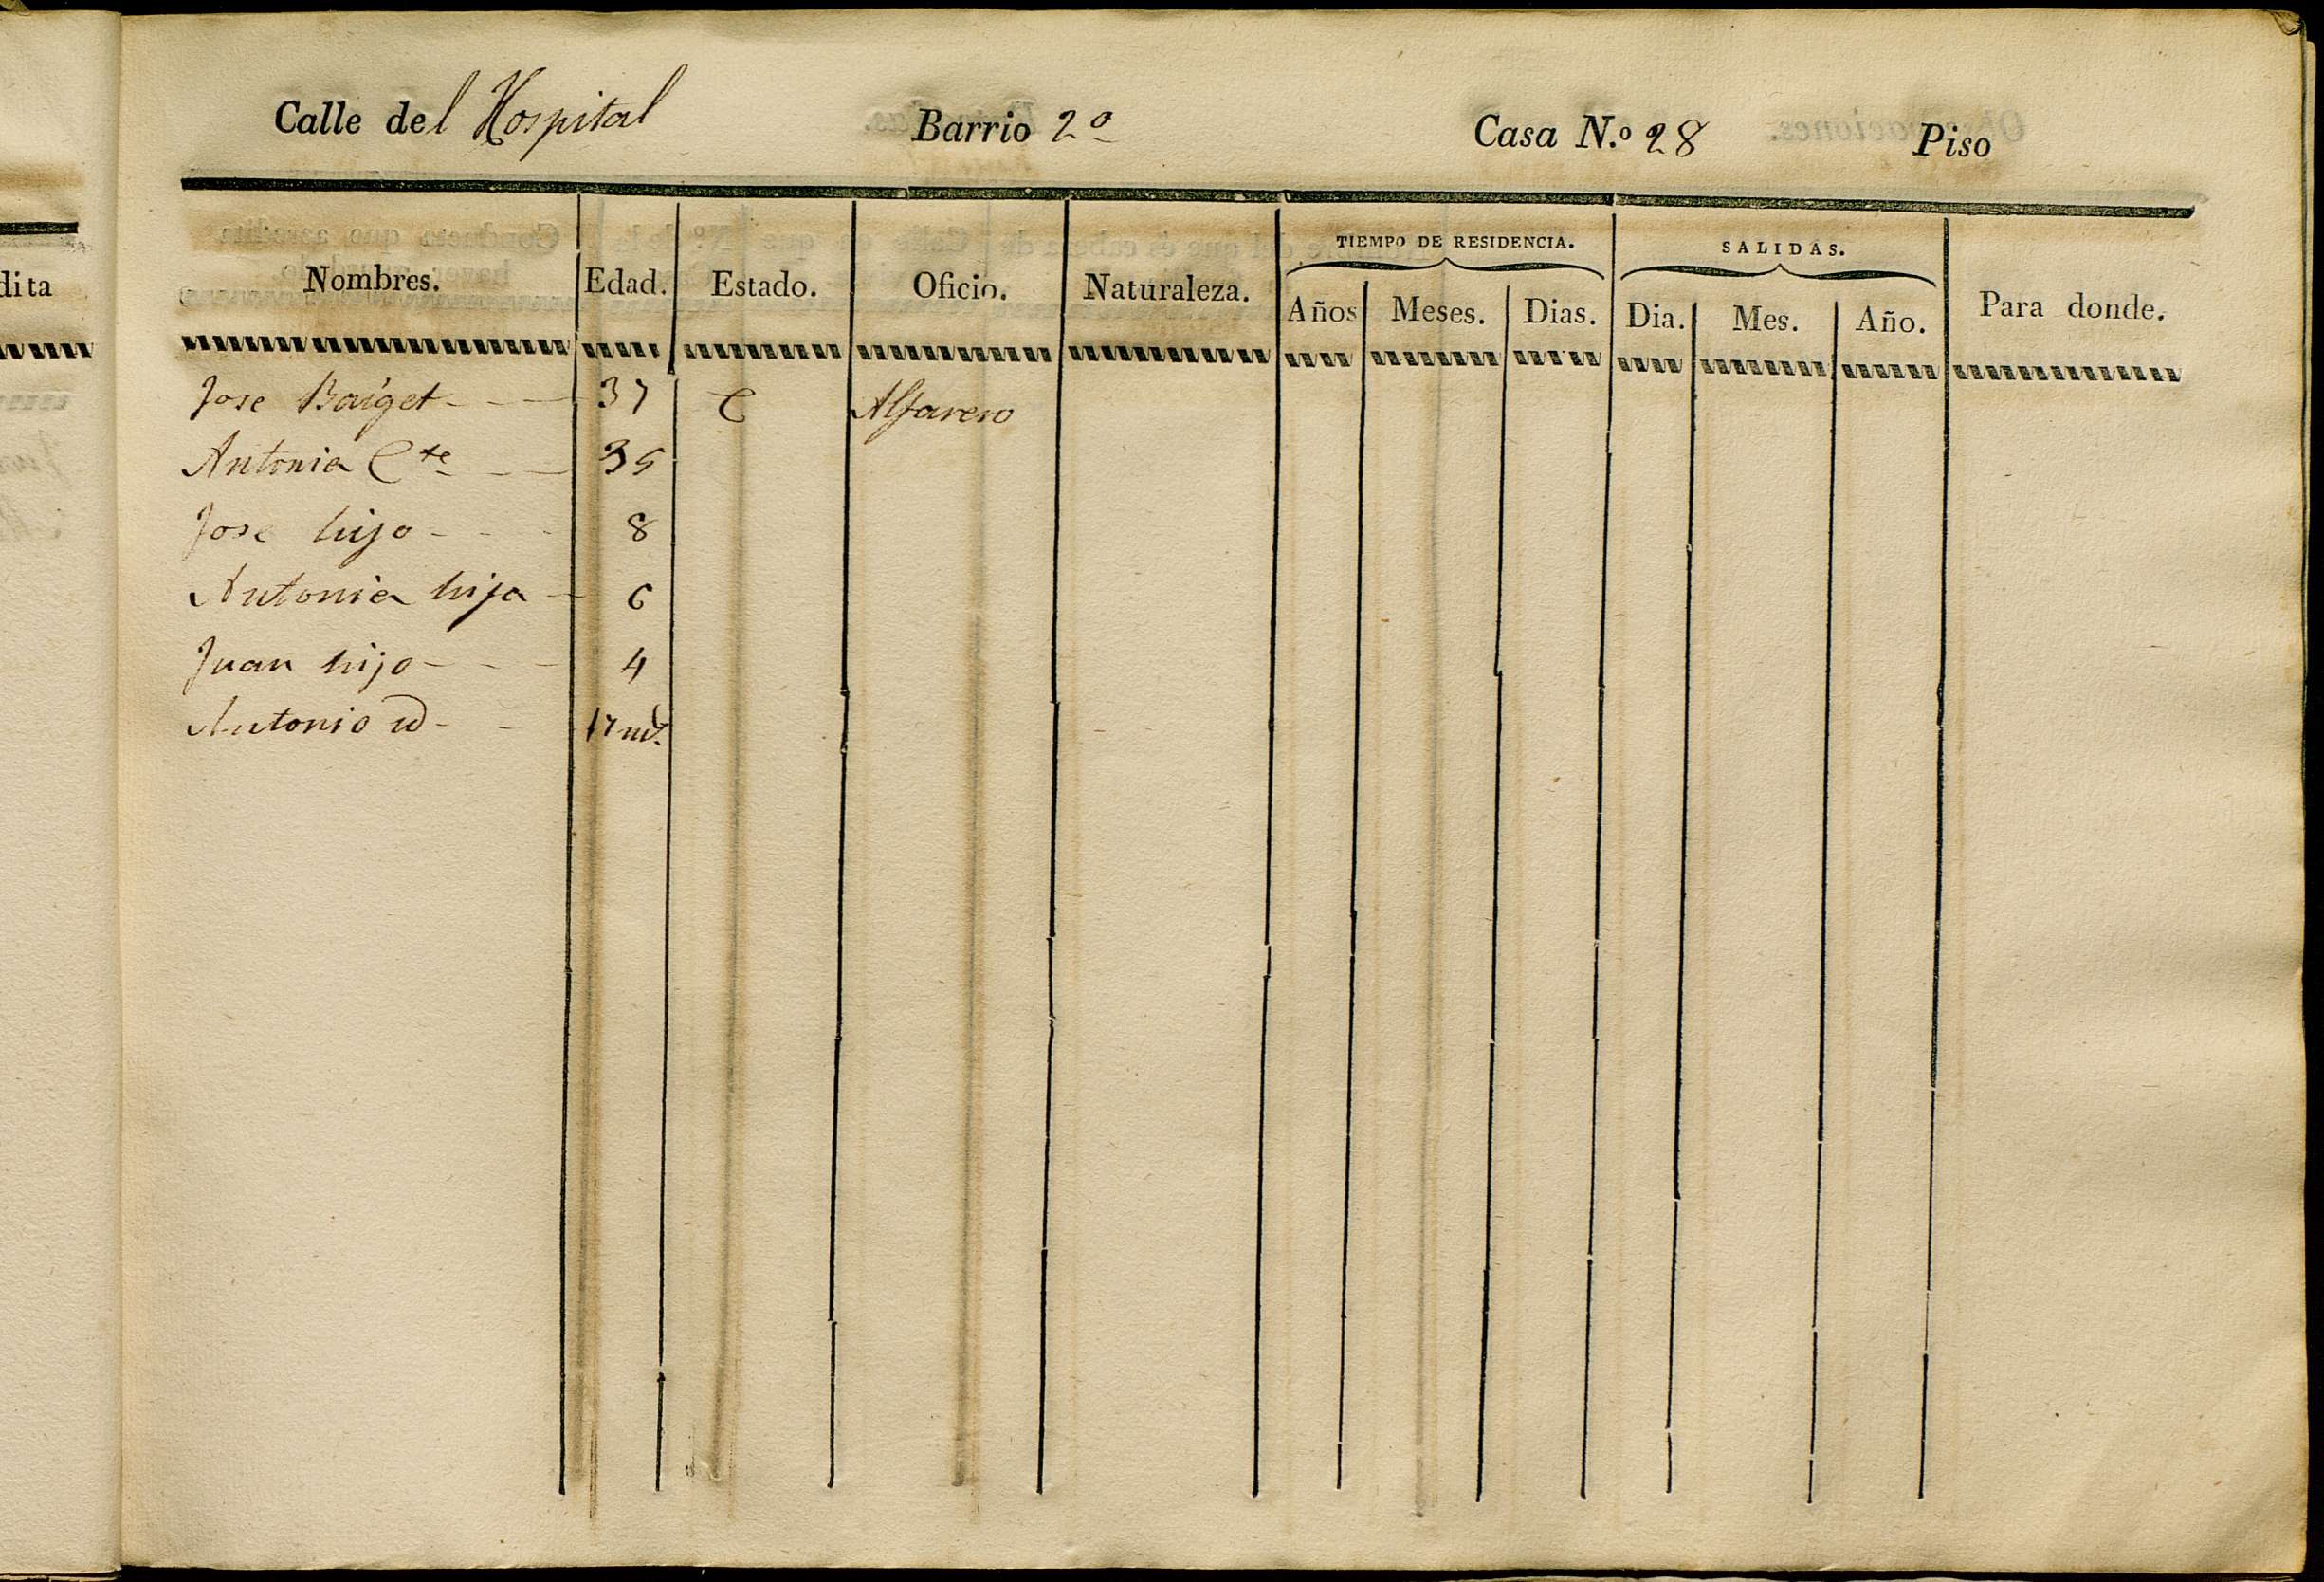 Calle del Hospital Barrio 2º Casa N.º 28 Piso
TIEMPO DE RESIDENCIA. SALIDAS.
dita Nombres. Edad. Estado. Oficio. Naturaleza. Años Meses. Dias. Dia. Mes. Año. Para donde.
Jose Baiget - - - 37 C Alfarero
Antonia Cte - - 35
Jose hijo - - - 8
Antonia hija - 6
Juan hijo - - - 4
Antonio id - - 17 ms.